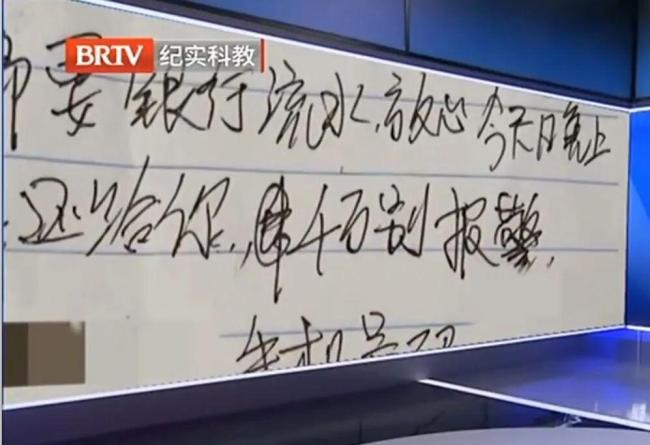 BRTV 纪实科教
要银行流水,放心今天日晚上
还给你,千万别报警.
手机号码